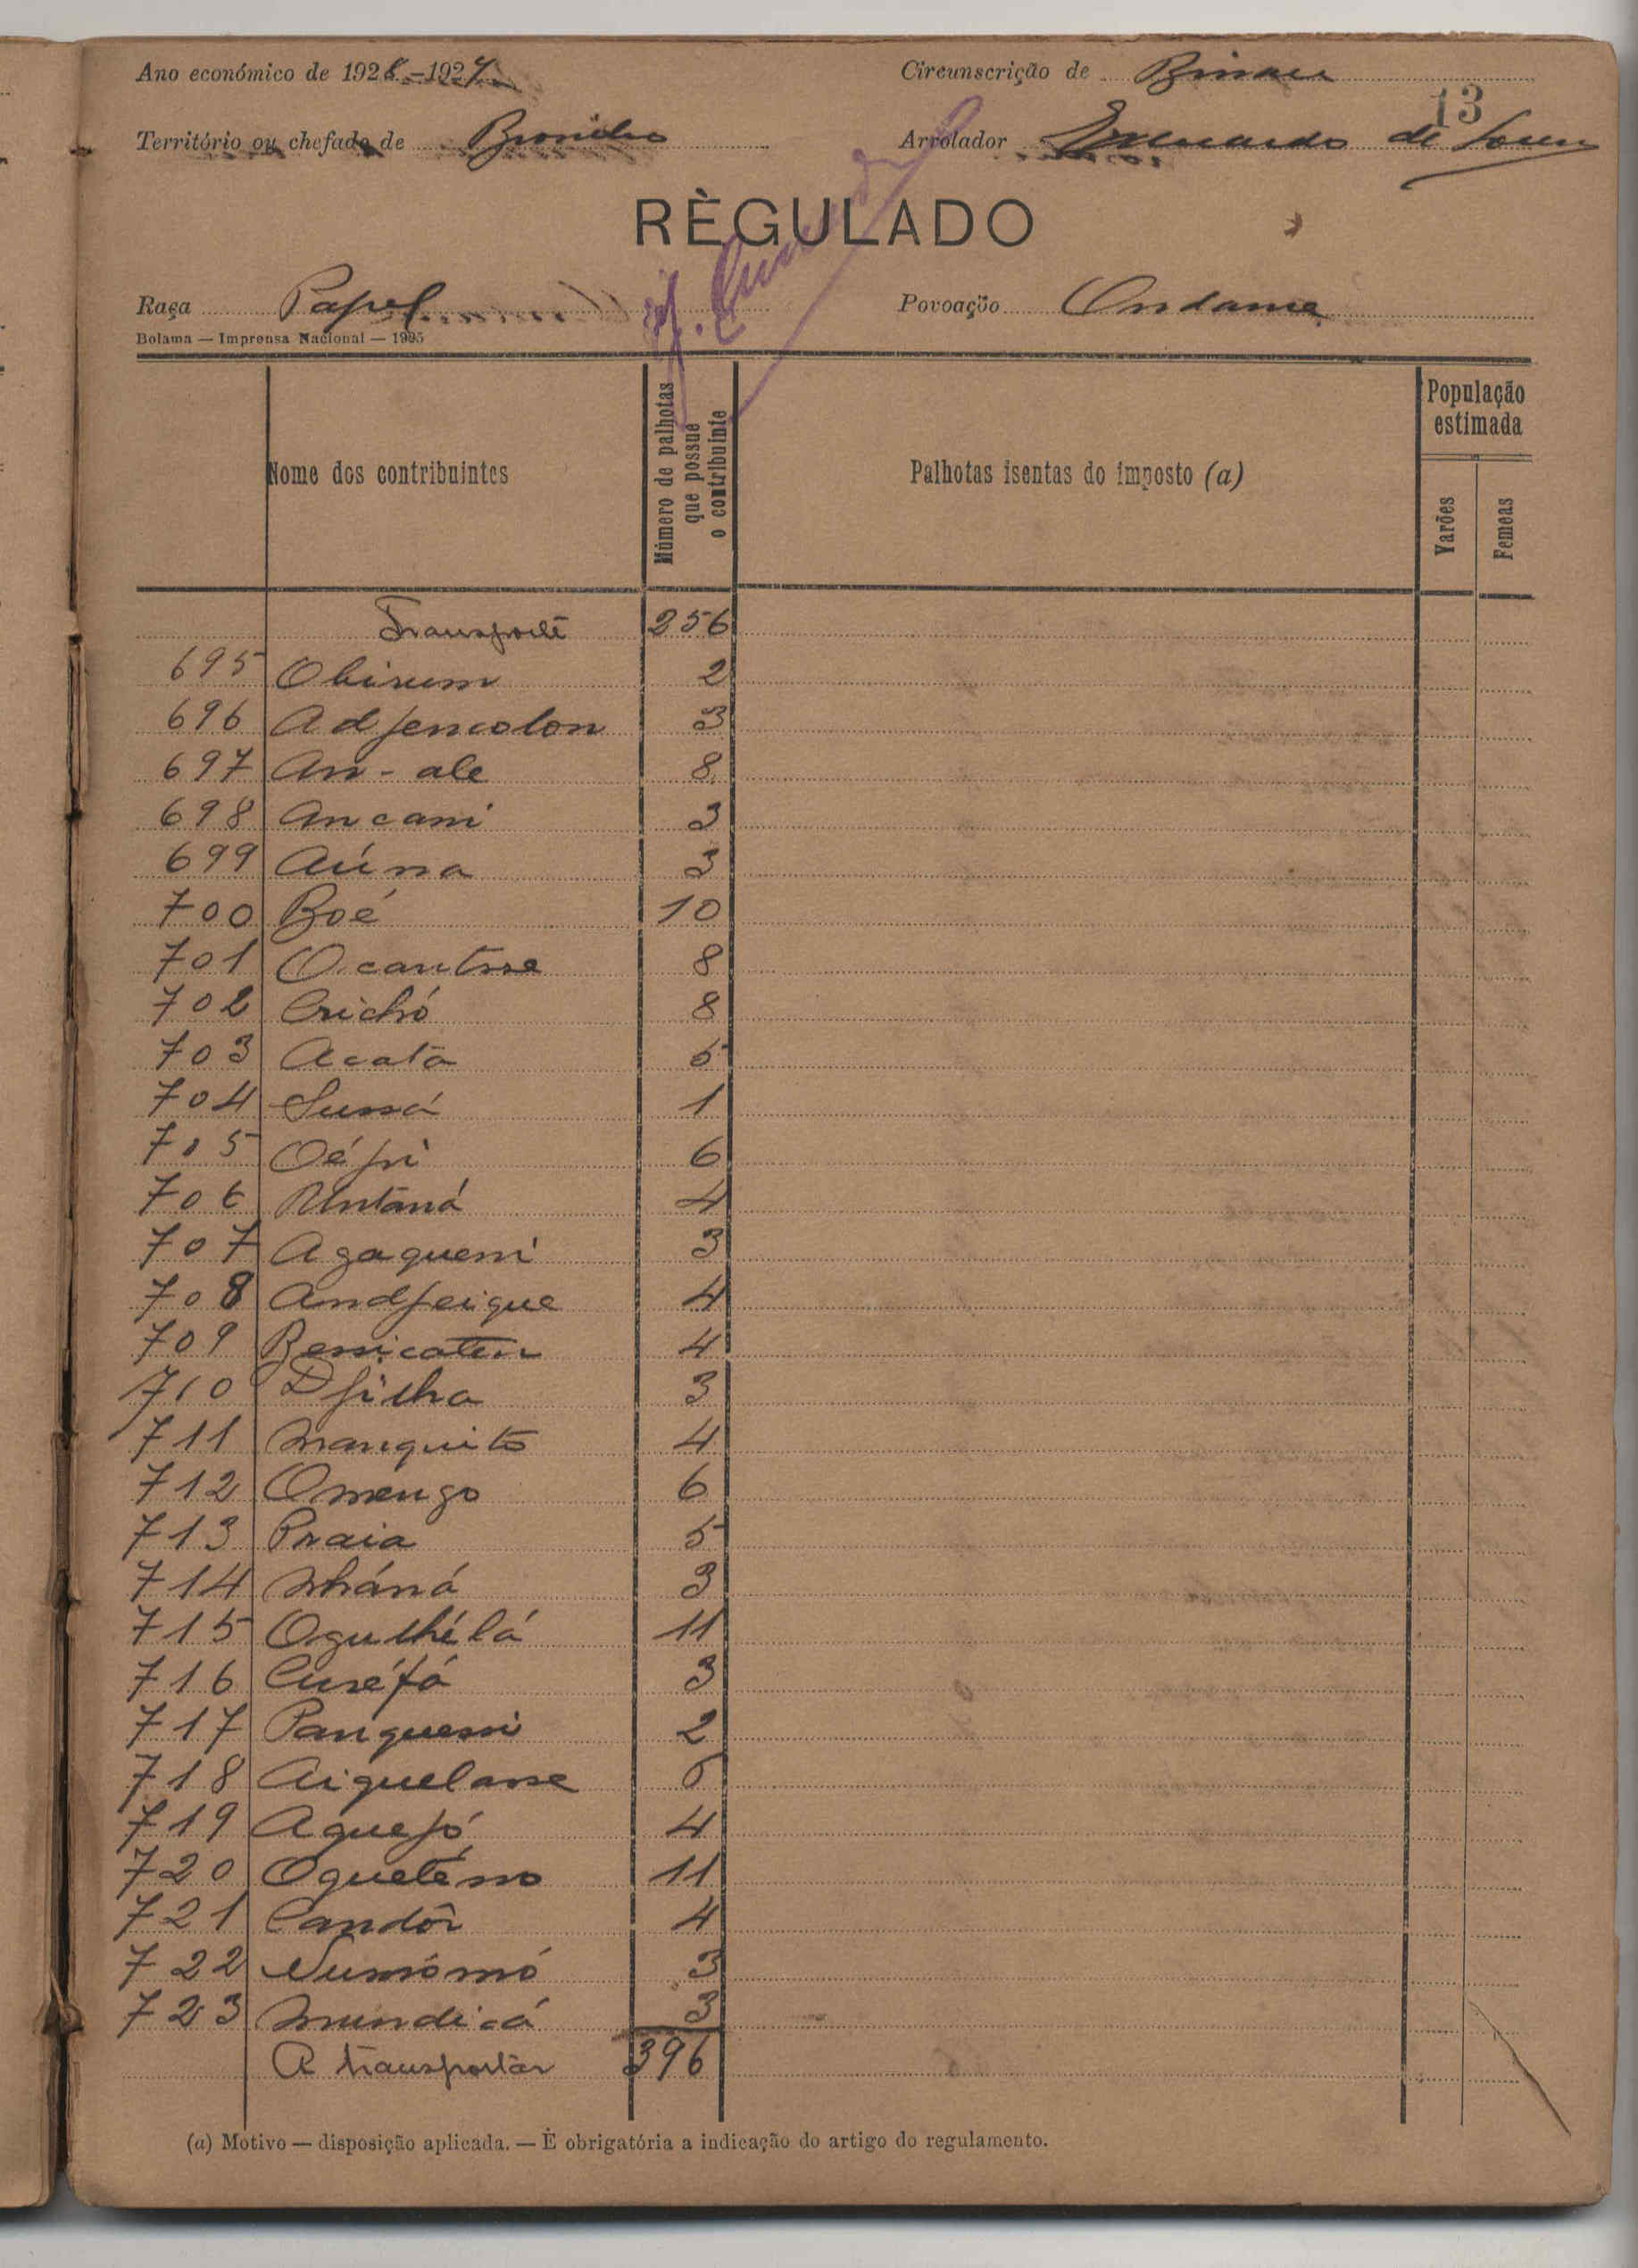 Ano económico de 1926-1927
Circunscrição de Bissau
13
Território ou chefado de
Arrolador de Sousa
RÈGULADO
Raça Papel
Povoação Ondame
Bolama — Imprensa Nacional — 1925
Nome dos contribuintes
Número de palhotas que possue o contribuinte
Palhotas isentas do imposto (a)
População estimada
Varões
Femeas
Transporte 256
695 Obirum 2
696 Adjencolon 3
697 An-ale 8
698 Ancani 3
699 Aúna 3
700 Boé 10
701 Ocantsse 8
702 Crichó 8
703 Acatã 5
704 Sussá 1
705 Oépi 6
706 Untãná 4
707 Agaqueni 3
708 Andjeique 4
709 Bessicaten 4
710 Djilha 3
711 Manquito 4
712 Omengo 6
713 Praia 5
714 Nháná 3
715 Ogulhélá 11
716 Curéfá 3
717 Panquessi 2
718 Aiquelasse 5
719 Aquejó 4
720 Oqueténo 11
721 Candôr 4
722 Numómó 3
723 Mundicá 3
A transportar 396
(a) Motivo — disposição aplicada. — É obrigatória a indicação do artigo do regulamento.